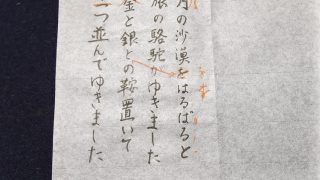 月の沙漠をはるばると
旅の駱駝がゆきました
金と銀との鞍置いて
二つ並んでゆきました